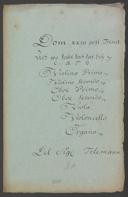 Dom XXIII post Trinit
C. A. T. B.
Violino Primo
Violino Secondo
Oboe Primo
Oboe Secondo
Viola
Violoncello
Organo
Del Sigr Telemann